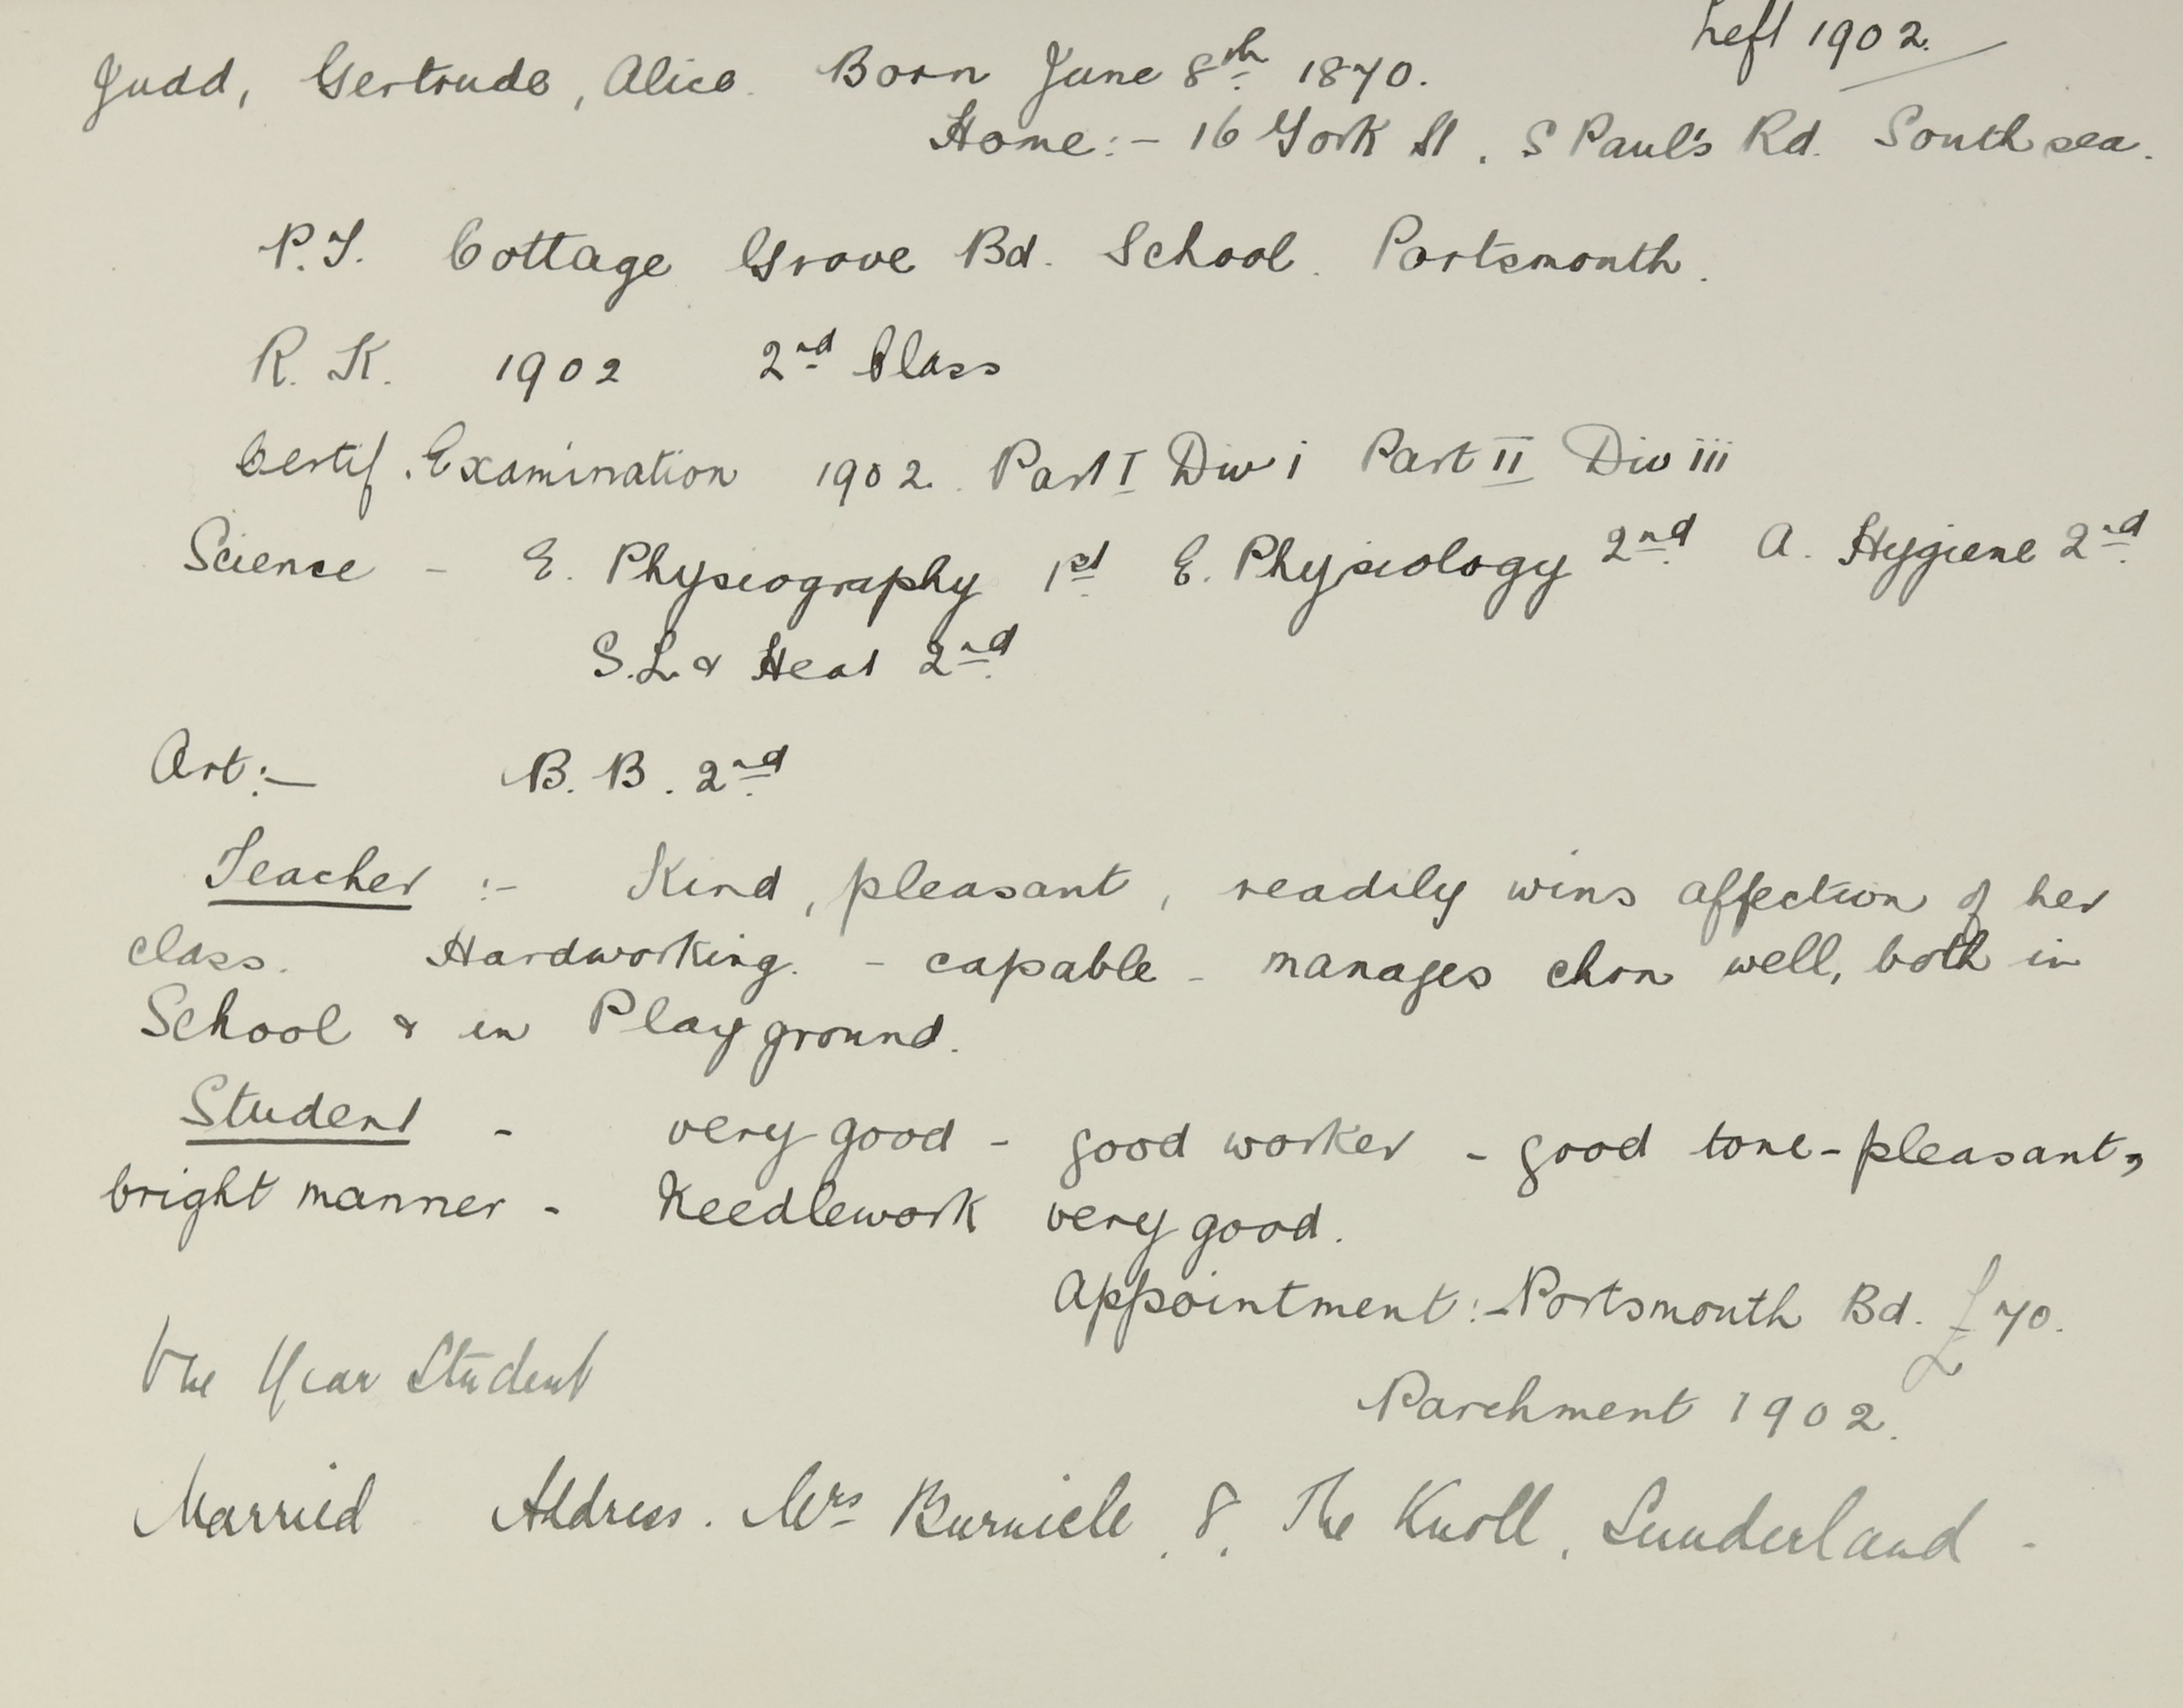 Left 1902.
Judd, Gertrude, Alice. Born June 8th 1870.
Home:- 16 York St. S Paul's Rd. Southsea.
P.T. Cottage Grove Bd. School. Portsmouth.
R. K. 1902 2nd Class
Certif. Examination 1902. Part I Div i Part II Div iii
Science - E. Physiography 1st E. Physiology 2nd A. Hygiene 2nd
S.L. & Heat 2nd
Art:- B. B. 2nd
Teacher :- Kind, pleasant, readily wins affection of her
class. Hardworking. - capable - manages chn well, both in
School & in Playground.
Student - very good - good worker - good tone - pleasant,
bright manner - Needlework very good.
Appointment:- Portsmouth Bd. £70.
One Year Student
Parchment 1902.
Married Address. Mrs Burnicle, 8, The Knoll, Sunderland -